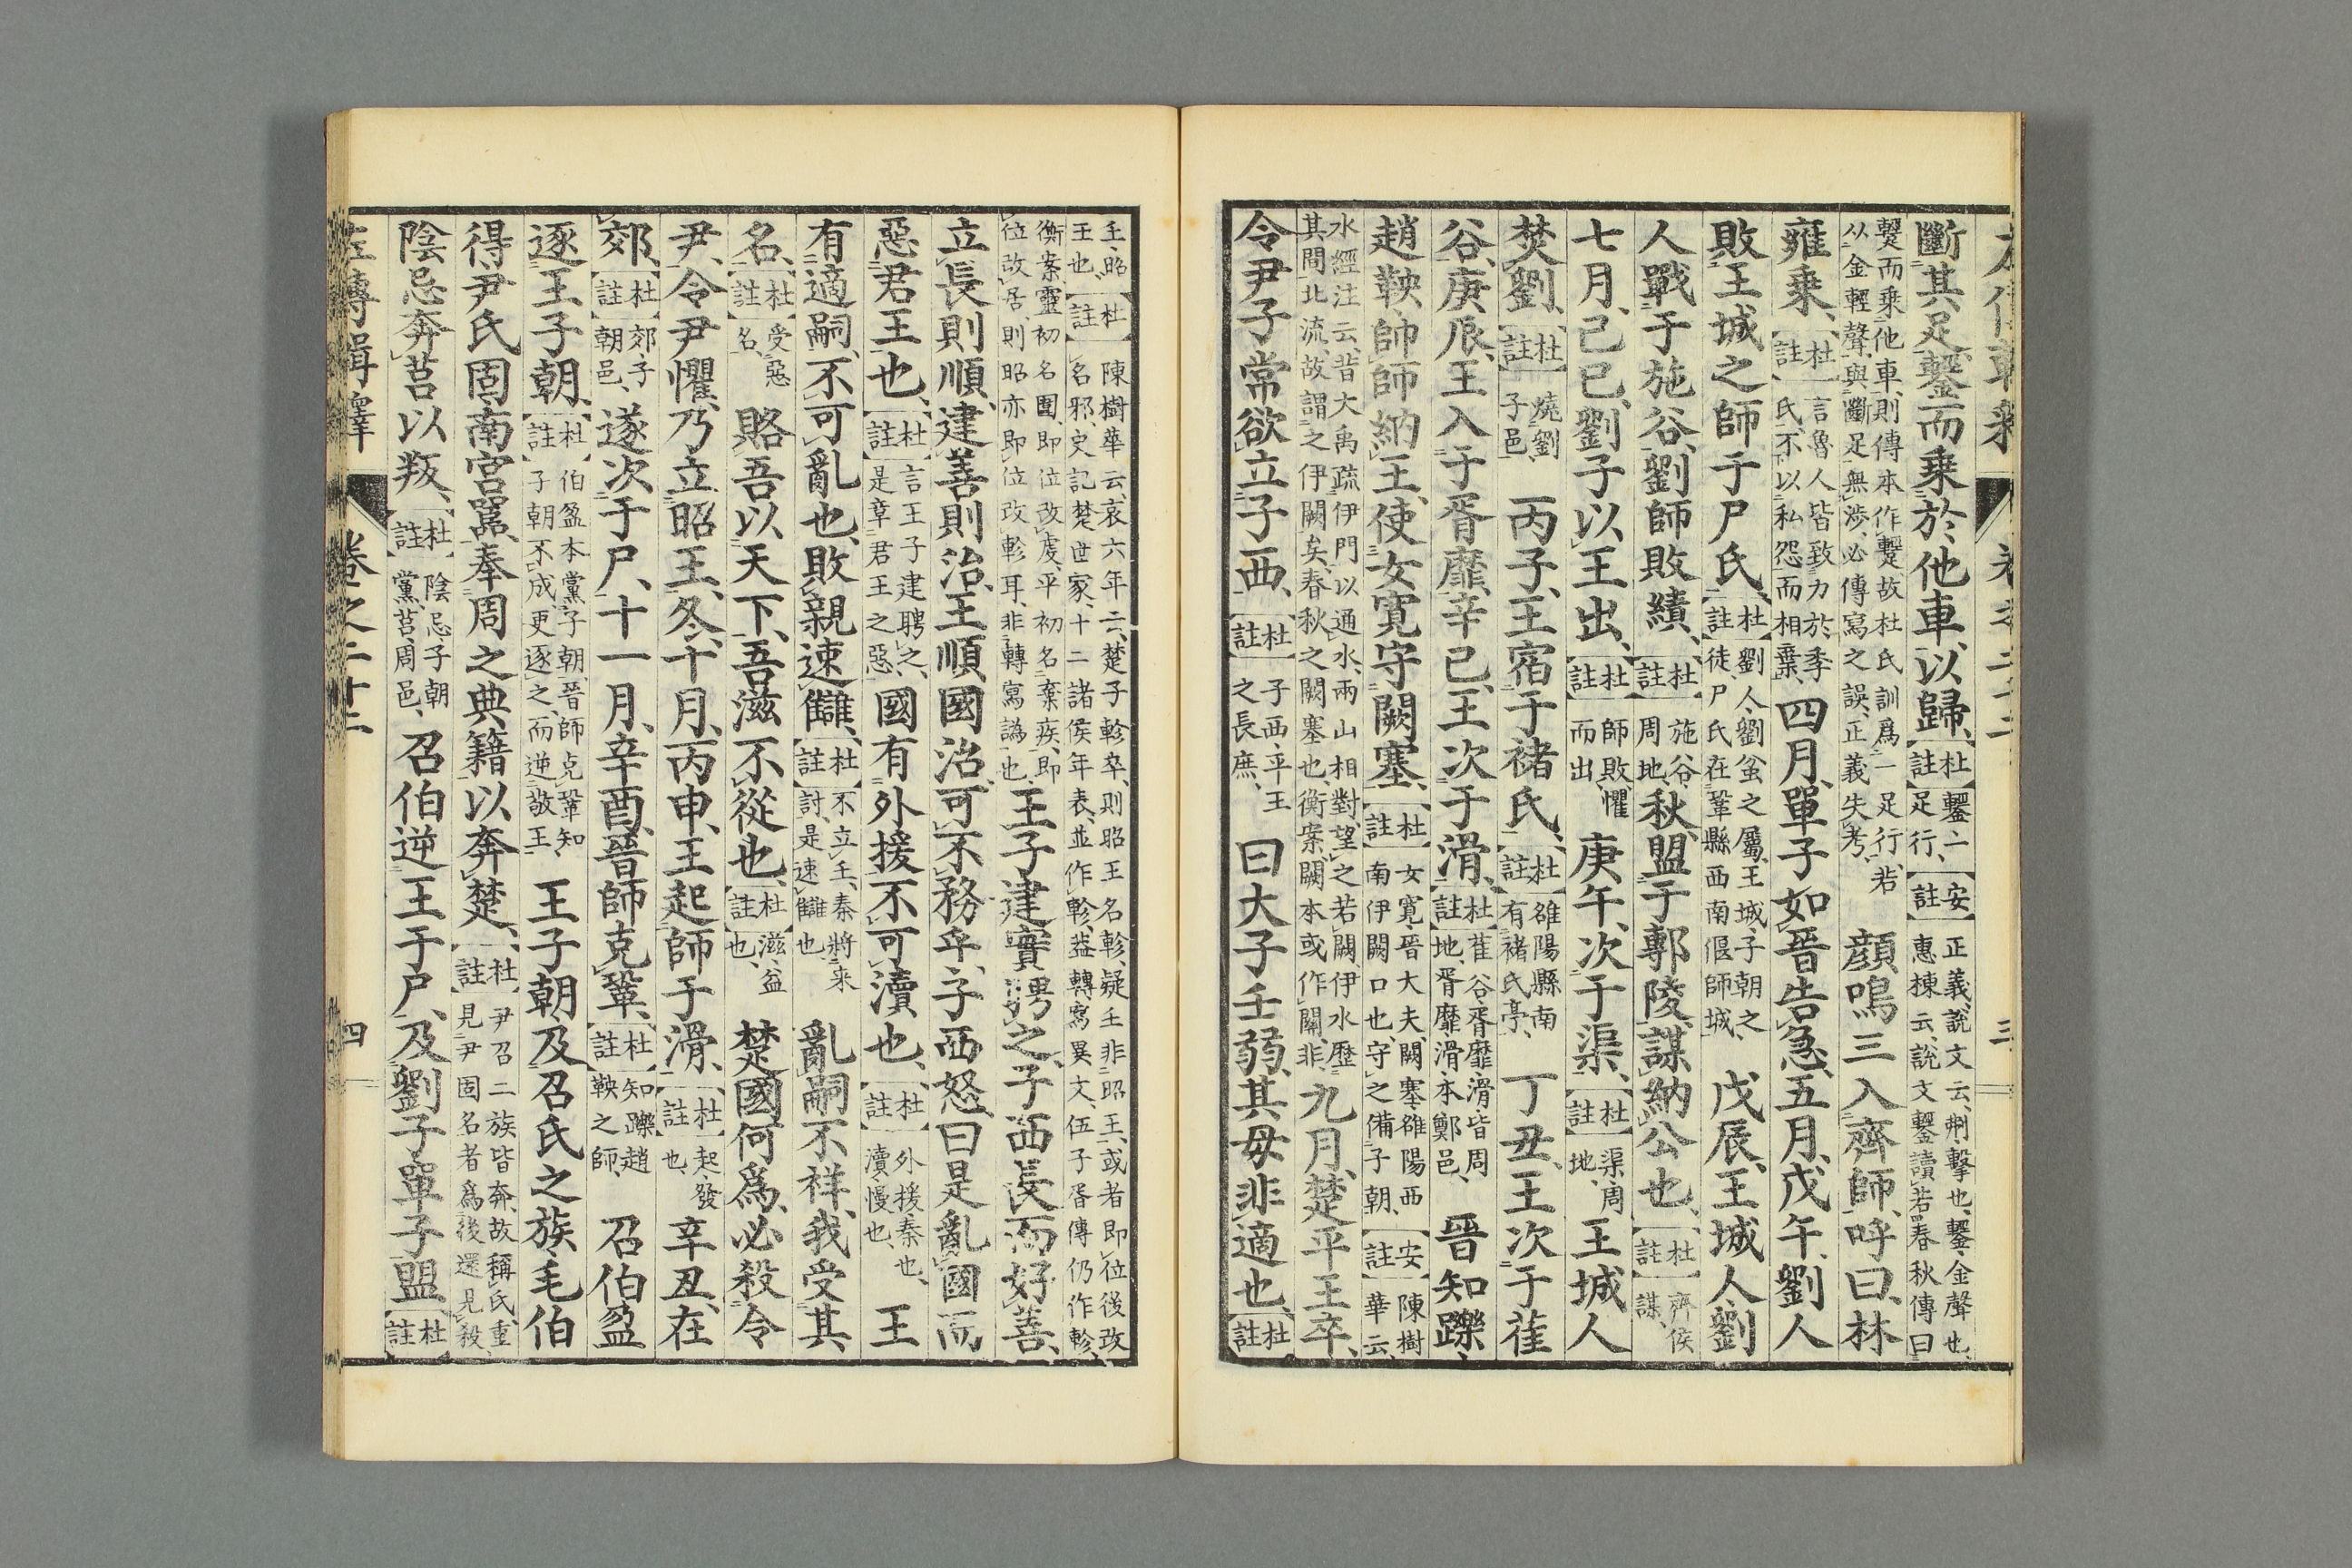 斷其足鑋而乘於他車以歸、【杜註】鑋一足行、【安註】正義、說文云、㓸擊也、鑋金聲也、惠棟云、說文鑋讀若春秋傳曰
鑋而乘他車、則傳本作鑋故杜氏訓爲一足行、若从金輕聲、與斷足無渉、必傳寫之誤、正義失考、顏鳴三入齊師、呼曰、林
雍乘、【杜註】言魯人皆致力於季氏、不以私怨而相棄、四月、單子如晉告急、五月、戊午、劉人
敗王城之師于尸氏、【杜註】劉人、劉蚠之屬、王城、子朝之徒、尸氏在鞏縣西南偃師城、戊辰、王城人、劉
人戰于施谷、劉師敗績、【杜註】施谷、周地、秋、盟于鄟陵、謀納公也、【杜註】齊侯謀、
七月、己巳、劉子以王出、【杜註】師敗、懼而出、庚午、次于渠、【杜註】渠、周地、王城人
焚劉、【杜註】燒劉子邑、丙子、王宿于褚氏、【杜註】雒陽縣南有褚氏亭、丁丑、王次于萑
谷、庚辰、王入于胥靡、辛巳、王次于滑、【杜註】萑谷、胥靡、滑、皆周地、胥靡、滑、本鄭邑、晉知躒、
趙鞅、帥師納王、使女寬守闕塞、【杜註】女寬、晉大夫、闕塞、雒陽西南伊闕口也、守之備子朝、【安註】陳樹華云、
水經注云、昔大禹疏伊門以通水、兩山相對、望之若闕、伊水歷其間北流、故謂之伊闕矣、春秋之闕塞也、衡案、闕本或作關、非、九月、楚平王卒、
令尹子常欲立子西、【杜註】子西、平王之長庶、曰大子壬弱、其母非適也、【杜註】
壬、昭王也、【註】陳樹華云、哀六年云、楚子軫卒、則昭王名軫、疑壬非昭王、或者即位後改名邪、史記楚世家、十二諸侯年表、並作軫、蓋轉寫異文、伍子胥傳仍作軫、
衡案、靈初名圍、即位改虔、平初名棄疾、即位改居、則昭亦即位改軫耳、非轉寫譌也、王子建實聘之、子西長而好善、
立長則順、建善則治、王順國治、可不務乎、子西怒曰、是亂國而
惡君王也、【杜註】言王子建聘之、是章君王之惡、國有外援、不可瀆也、【杜註】外援、秦也、瀆、慢也、王
有適嗣、不可亂也、敗親速讎、【杜註】不立壬、秦將來討、是速讎也、亂嗣不祥、我受其
名、【杜註】受惡名、賂吾以天下、吾滋不從也、【杜註】滋、益也、楚國何爲、必殺令
尹、令尹懼、乃立昭王、冬、十月、丙申、王起師于滑、【杜註】起、發也、辛丑、在
郊、【杜註】郊、子朝邑、遂次于尸、十一月、辛酉、晉師克鞏、【杜註】知躒趙鞅之師、召伯盈
逐王子朝、【杜註】伯盈本黨子朝、晉師克鞏、知子朝不成、更逐之、而逆敬王、王子朝及召氏之族、毛伯
得、尹氏固、南宮嚚、奉周之典籍以奔楚、【杜註】尹召二族皆奔、故稱氏、重見尹固名者、爲後還見殺、
陰忌奔莒以叛、【杜註】陰忌子朝黨、莒、周邑、召伯逆王于尸、及劉子單子盟、【杜註】
左傳輯釋　卷之二十二　四